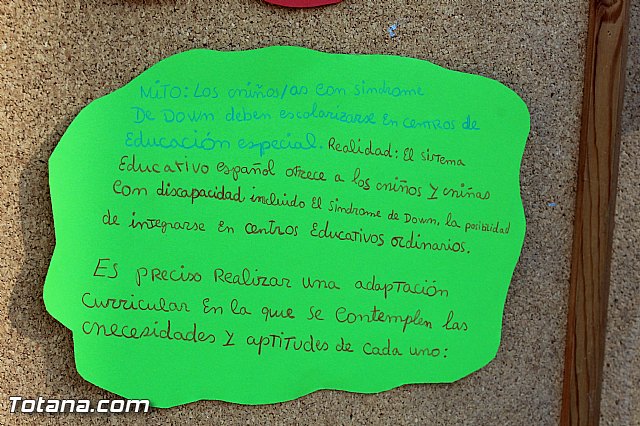 Mito: Los cniños/as con sindrome
De Down deben escolarizarse en centros de
Educación especial. Realidad: El sistema
Educativo español ofrece a los cniños y cniñas
con discapacidad, incluido El sindrome de Down, la posibilidad
de integrarse en centros Educativos ordinarios.
Es preciso Realizar una adaptación
curricular en la que se contemplen las
cnecesidades y aptitudes de cada uno:
Totana.com